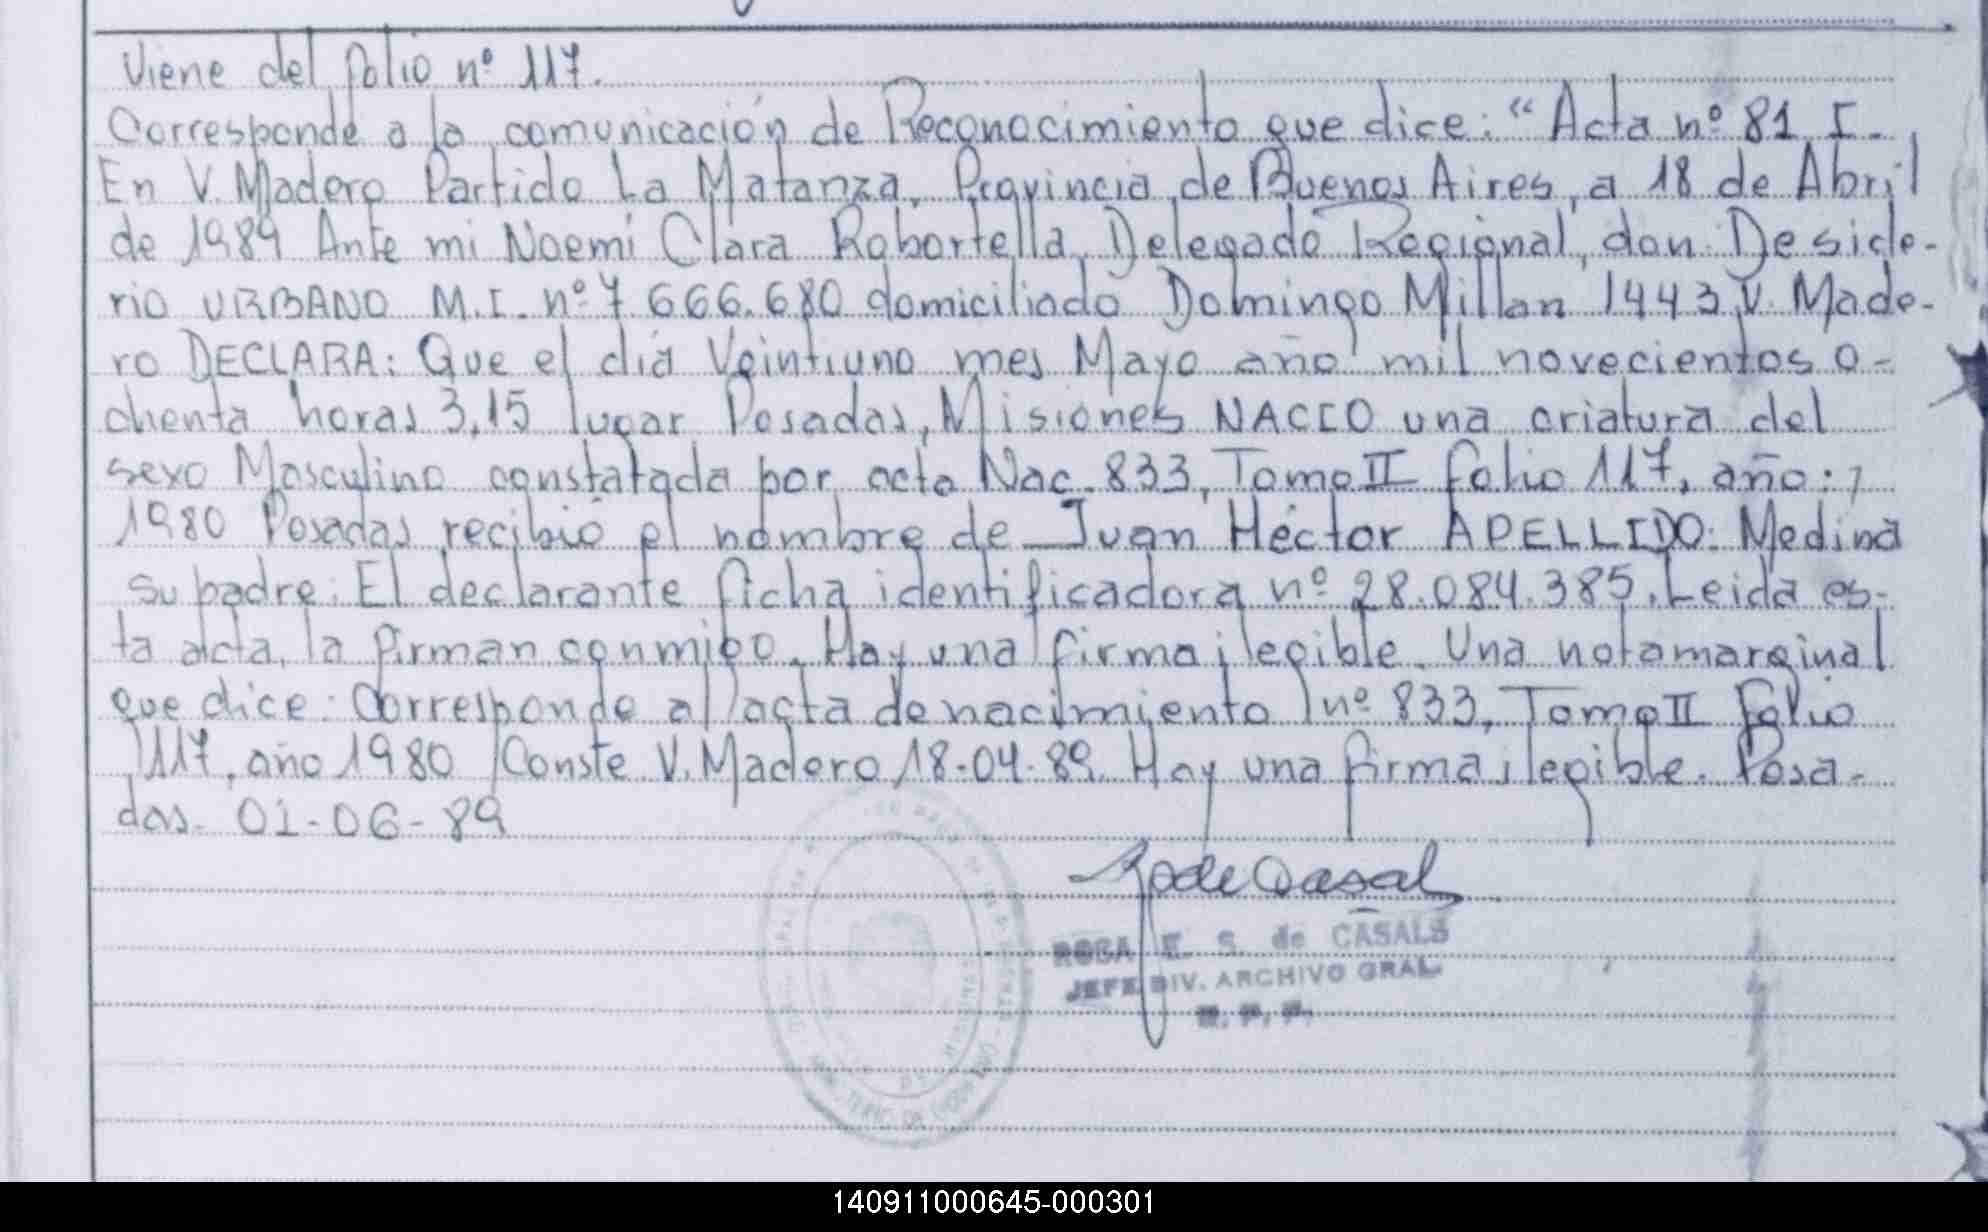 Viene del folio nº 117.
Corresponde a la comunicación de Reconocimiento que dice: "Acta nº 81 I.
En V. Madero Partido La Matanza, Provincia de Buenos Aires, a 18 de Abril
de 1989 Ante mi Noemí Clara Robortella, Delegado Regional, don: Deside-
rio URBANO M.I. nº 7.666.680 domiciliado Domingo Millan 1443 V. Made-
ro DECLARA: Que el día Veintiuno mes Mayo año mil novecientos o-
chenta horas 3,15 lugar Posadas, Misiones NACIO una criatura del
sexo Masculino constatada por acta Nac. 833, Tomo II folio 117, año:
1980 Posadas recibió el nombre de Juan Héctor APELLIDO: Medina
su padre: El declarante ficha identificadora nº 28.084.385. Leida es-
ta acta, la firman conmigo. Hay una firma ilegible. Una nota marginal
que dice: Corresponde al acta de nacimiento nº 833, Tomo II Folio
117, año 1980 Conste V. Madero 18-04-89. Hay una firma ilegible. Posa-
das. 01-06-89
ROSA E. S. de CASALS
JEFE DIV. ARCHIVO GRAL.
R. P. P.
140911000645-000301